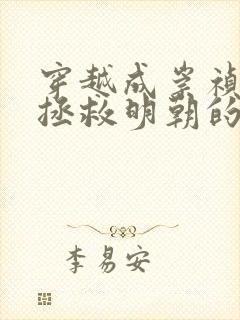 穿越成崇祯
拯救明朝的
李易安